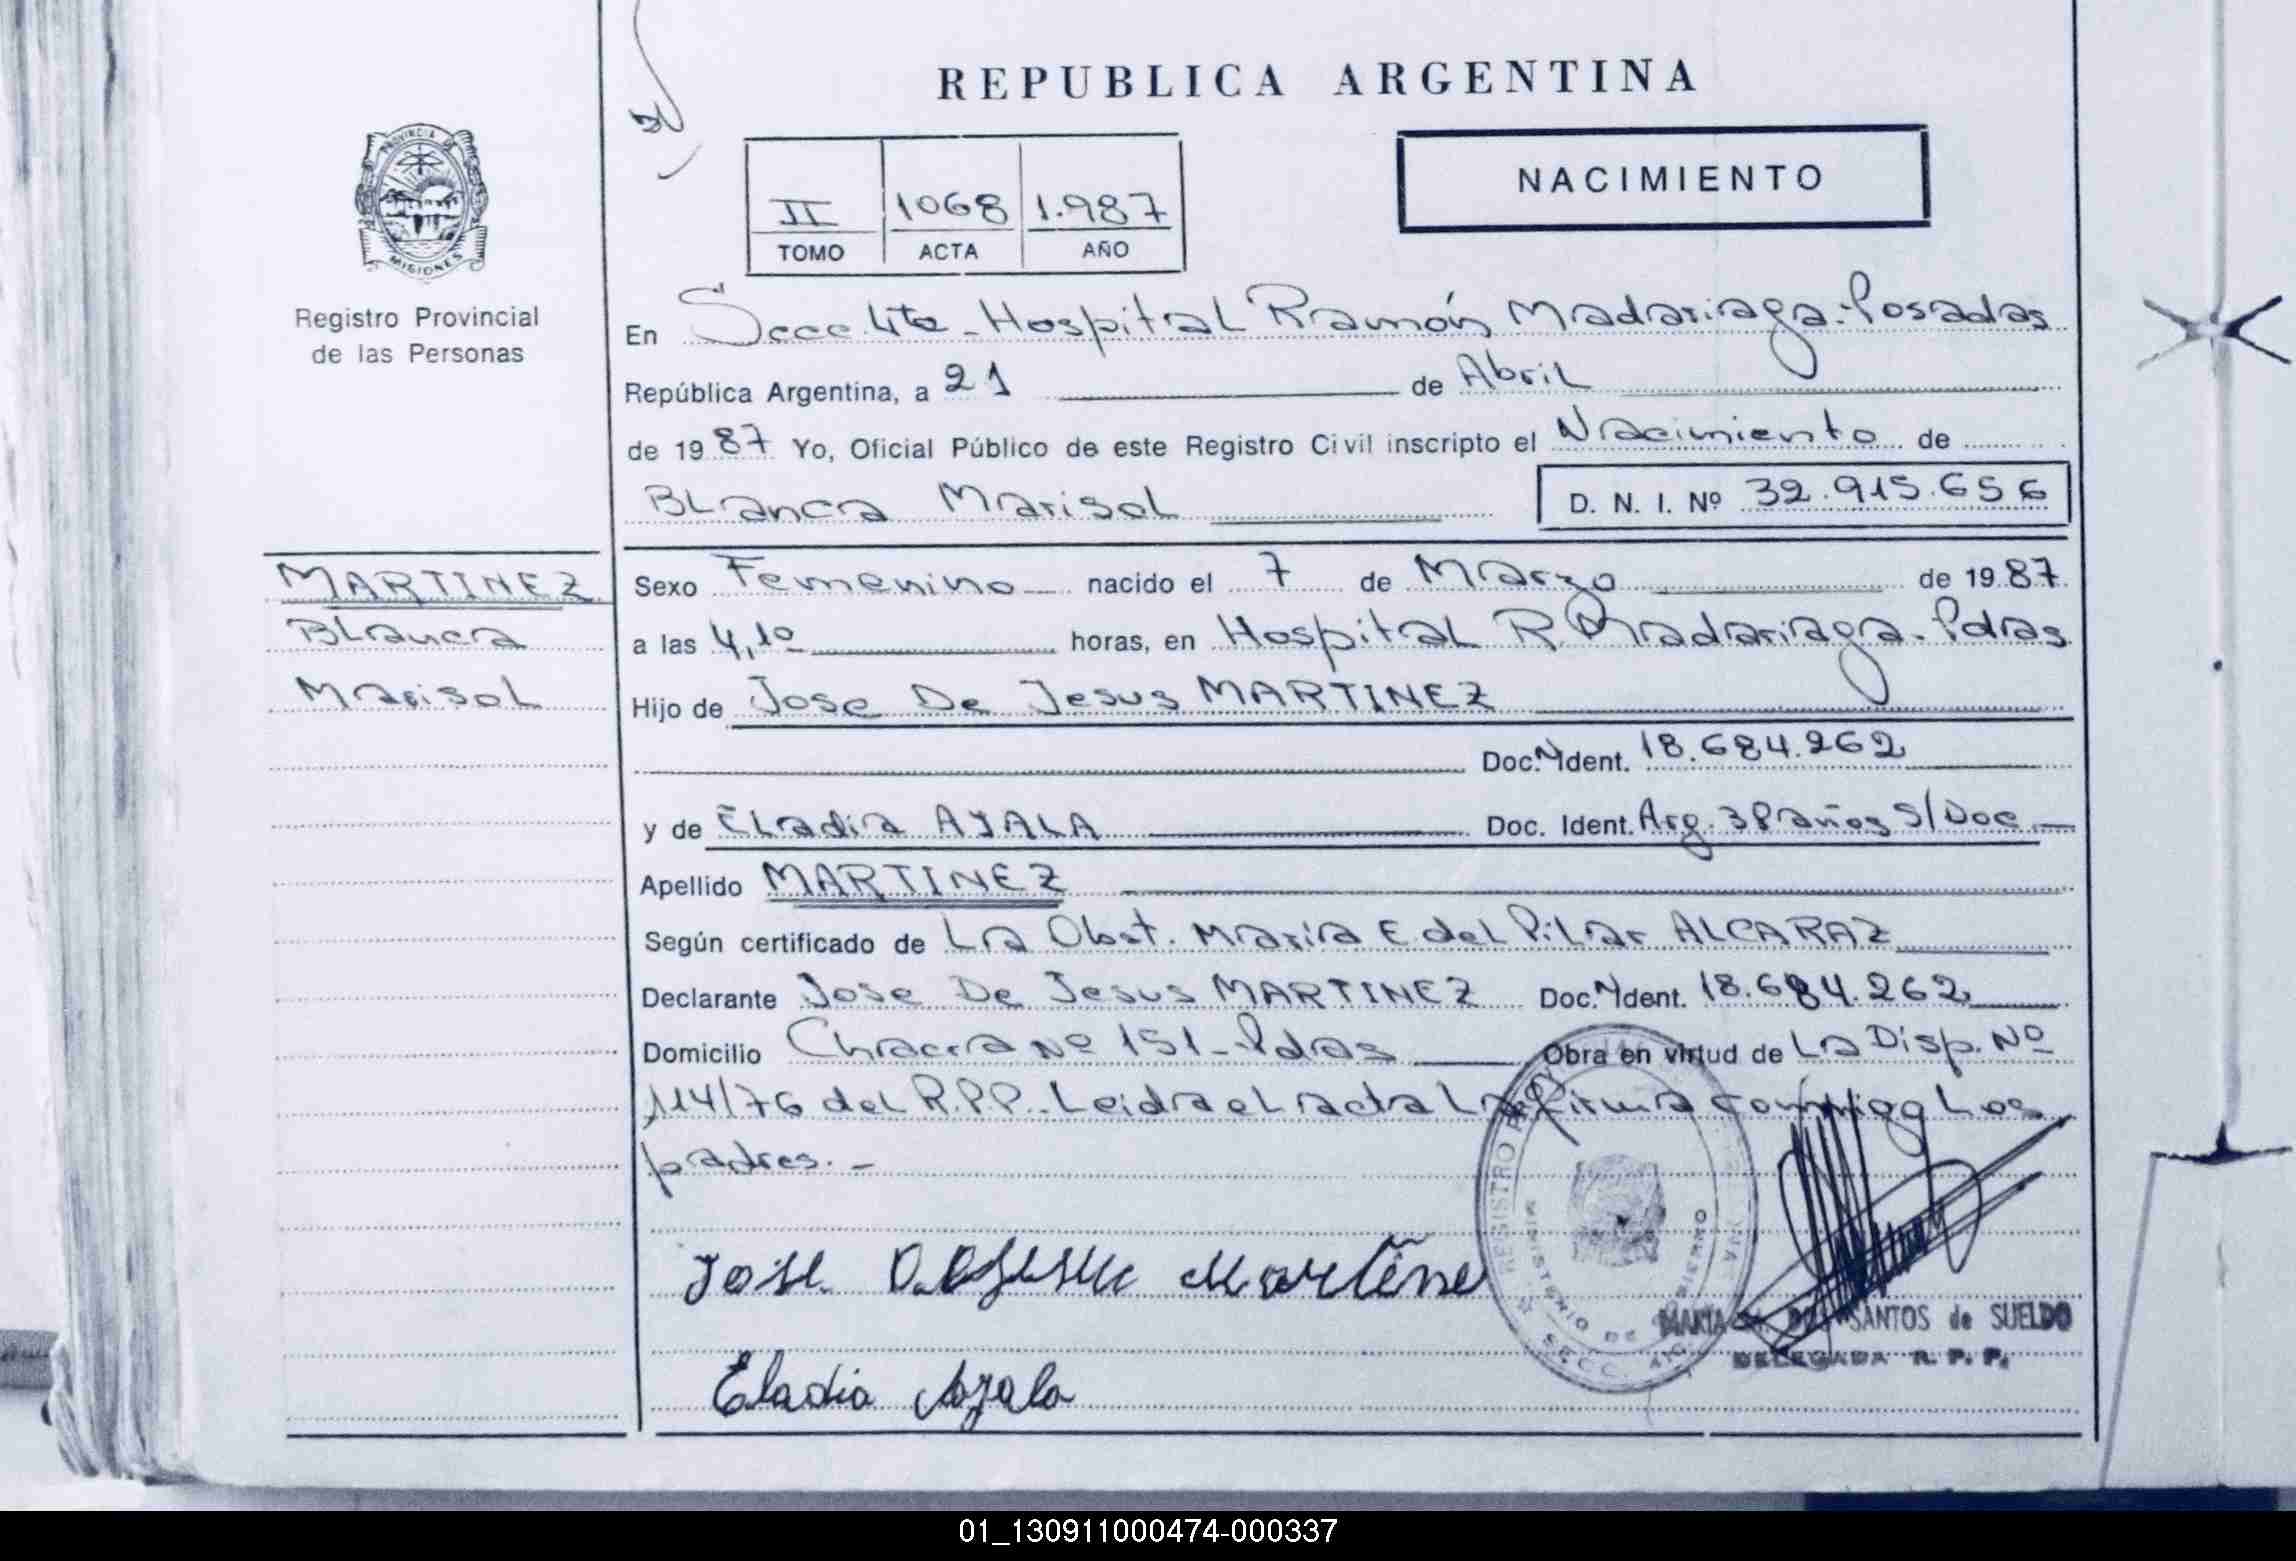 REPUBLICA ARGENTINA
PROVINCIA DE
MISIONES
Registro Provincial
de las Personas
II 1068 1.987
TOMO ACTA AÑO
NACIMIENTO
En Secc. 4ta - Hospital Ramón Madariaga - Posadas
República Argentina, a 21 de Abril
de 1987 Yo, Oficial Público de este Registro Civil inscripto el Nacimiento de
Blanca Marisol D. N. I. Nº 32.915.656
MARTINEZ
Blanca
Marisol
Sexo Femenino nacido el 7 de Marzo de 1987
a las 4,10 horas, en Hospital R. Madariaga - Pdas
Hijo de Jose De Jesus MARTINEZ
Doc. N Ident. 18.684.262
y de Eladia AYALA Doc. Ident. Arg. 38 años S/Doc
Apellido MARTINEZ
Según certificado de La Obst. María E del Pilar ALCARAZ
Declarante Jose De Jesus MARTINEZ Doc. N Ident. 18.684.262
Domicilio Chacra Nº 151 - Pdas Obra en virtud de La Disp. Nº
114/76 del R.P.P. - Leida el acta La firma conmigo Los
padres. -
Jose D Jesus Martine
Eladia Ayala
REGISTRO
MINISTERIO DE GOBIERNO
SECC.
MARIA DOS SANTOS de SUELDO
DELEGADA R. P. P.
01_130911000474-000337